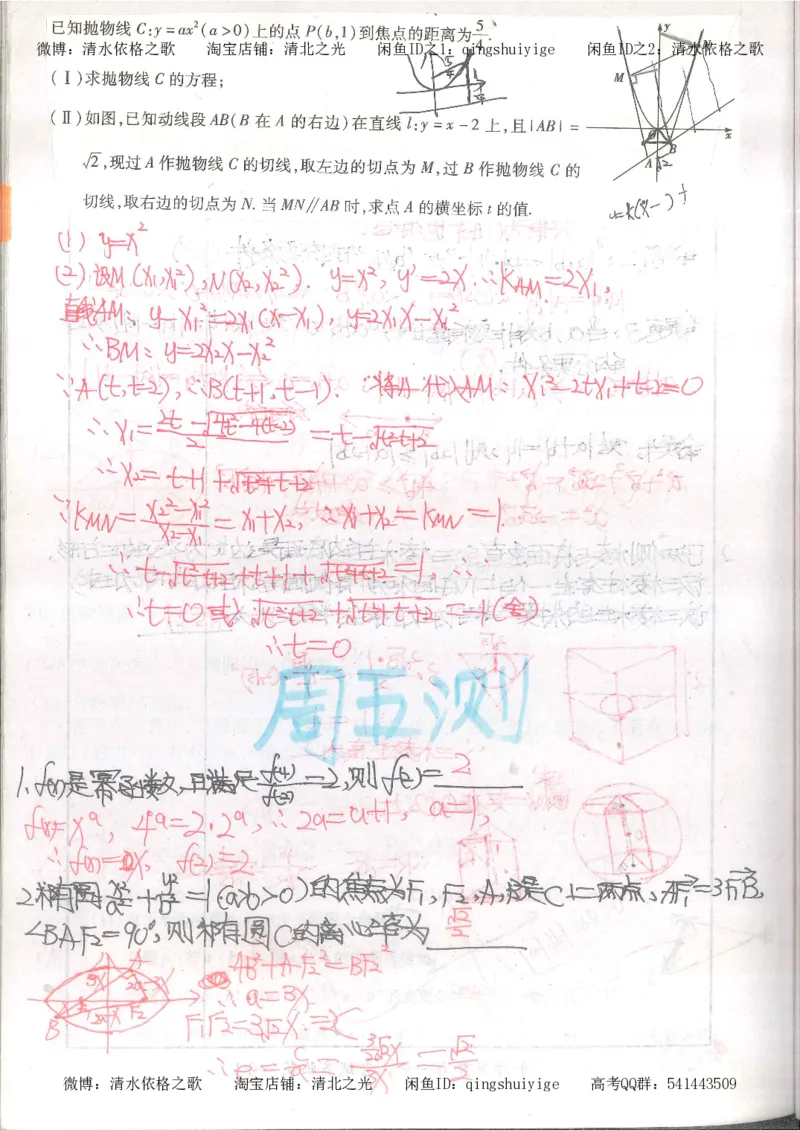 已知抛物线 C:y=ax²(a>0)上的点 P(b,1)到焦点的距离为5/4.
微博：清水依格之歌 淘宝店铺：清北之光 闲鱼ID之1：qingshuiyige 闲鱼ID之2：清水依格之歌
(Ⅰ)求抛物线 C 的方程;
(Ⅱ)如图,已知动线段 AB(B 在 A 的右边)在直线 l:y=x-2 上,且|AB|=
√2,现过 A 作抛物线 C 的切线,取左边的切点为 M,过 B 作抛物线 C 的
切线,取右边的切点为 N.当 MN∥AB 时,求点 A 的横坐标 t 的值.
y
M
N
O
x
A
B
(1) y=x²
(2)设M(x₁,x₁²),N(x₂,x₂²). y=x², y'=2x. ∴K_AM=2x₁,
直线AM: y-x₁²=2x₁(x-x₁), y=2x₁x-x₁²
∴BM: y=2x₂x-x₂²
∵A(t,t-2),∴B(t+1,t-1). ∵将A代入AM: x₁²-2tx₁+t-2=0
∴x₁=(2t-√(4t²-4(t-2)))/2=t-√(t²-t+2)
∴x₂=t+1+√(t²+t+2)
∵K_MN=(x₂²-x₁²)/(x₂-x₁)=x₁+x₂, ∴x₁+x₂=K_MN=1.
∴t-√(t²-t+2)+t+1+√(t²+t+2)=1,
∴t=0或√(t²-t+2)+√(t²+t+2)=-1(舍)
∴t=0
周五测
1.f(x)是幂函数,且满足f(4)/f(2)=2,则f(2)=2
f(x)=xᵃ, 4ᵃ=2·2ᵃ,∴2a=a+1, a=1,
∴f(x)=x, f(2)=2.
2.椭圆x²/a²+y²/b²=1(a>b>0)的焦点为F₁,F₂,A,B是C上两点,AF₁=3F₁B,
∠BAF₂=90°,则椭圆C的离心率为√2/2
AB²+AF₂²=BF₂²
∴a=3x
F₁F₂=3√2x
∴e=c/a=(3√2/2 x)/3x=√2/2
微博：清水依格之歌 淘宝店铺：清北之光 闲鱼ID：qingshuiyige 高考QQ群：541443509